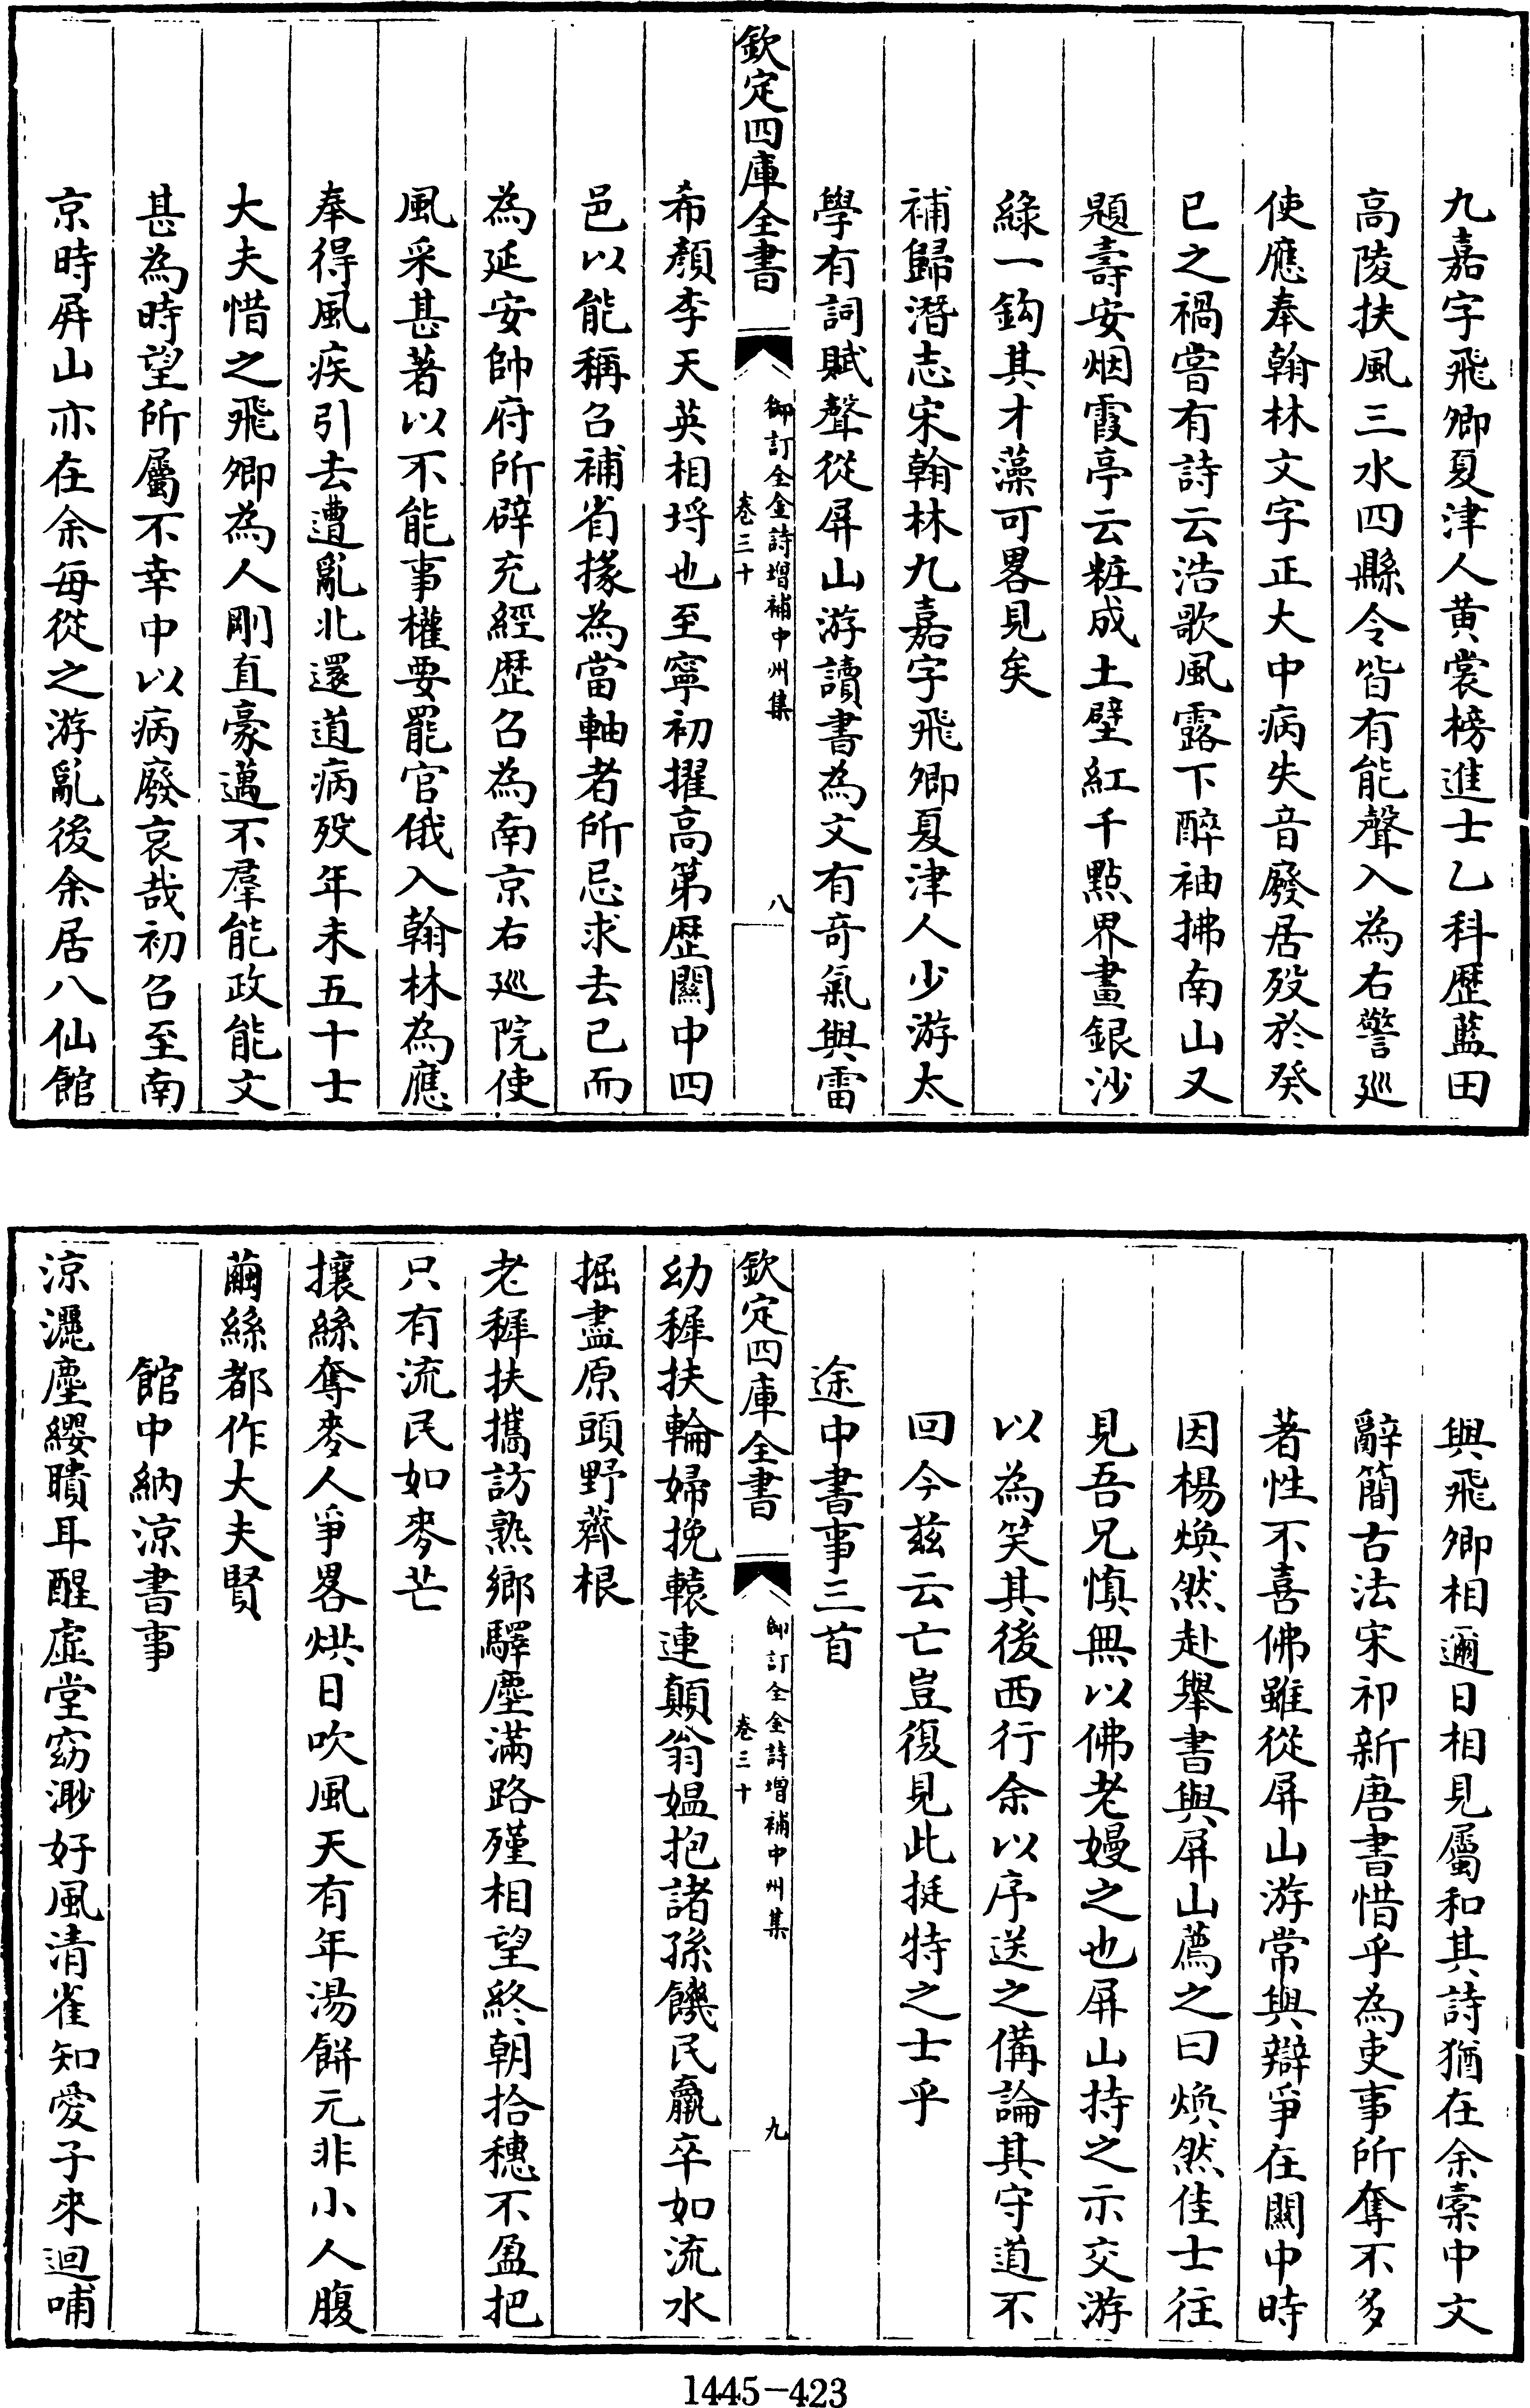 九嘉字飛卿夏津人黄裳榜進士乙科歴藍田
高陵扶風三水四縣令皆有能聲入為右警廵
使應奉翰林文字正大中病失音廢居歿於癸
巳之禍嘗有詩云浩歌風露下醉袖拂南山又
題壽安烟霞亭云粧成土壁紅千點界畫銀沙
綠一鈎其才藻可畧見矣
補歸潛志宋翰林九嘉字飛卿夏津人少游太
學有詞賦聲從屏山游讀書為文有奇氣與雷
欽定四庫全書
御訂全金詩增補中州集
卷三十
八
希顔李天英相埒也至寧初擢高第歴關中四
邑以能稱召補省掾為當軸者所忌求去已而
為延安帥府所辟充經歴召為南京右廵院使
風采甚著以不能事權要罷官俄入翰林為應
奉得風疾引去遭亂北還道病歿年未五十士
大夫惜之飛卿為人剛直豪邁不羣能政能文
甚為時望所屬不幸中以病廢哀哉初召至南
京時屏山亦在余每從之游亂後余居八仙館
與飛卿相邇日相見屬和其詩猶在余槖中文
辭簡古法宋祁新唐書惜乎為吏事所奪不多
著性不喜佛雖從屏山游常與辯爭在關中時
因楊煥然赴舉書與屏山薦之曰煥然佳士往
見吾兄慎無以佛老嫚之也屏山持之示交游
以為笑其後西行余以序送之備論其守道不
回今兹云亡豈復見此挺特之士乎
途中書事三首
欽定四庫全書
御訂全金詩增補中州集
卷三十
九
幼穉扶輪婦挽轅連顛翁媪抱諸孫饑民羸卒如流水
掘盡原頭野薺根
老穉扶攜訪熟鄉驛塵滿路殣相望終朝拾穗不盈把
只有流民如麥芒
攘絲奪麥人爭畧烘日吹風天有年湯餅元非小人腹
繭絲都作大夫賢
館中納涼書事
涼灑塵纓聵耳醒虛堂窈渺好風清雀知愛子來迴哺
1445-423